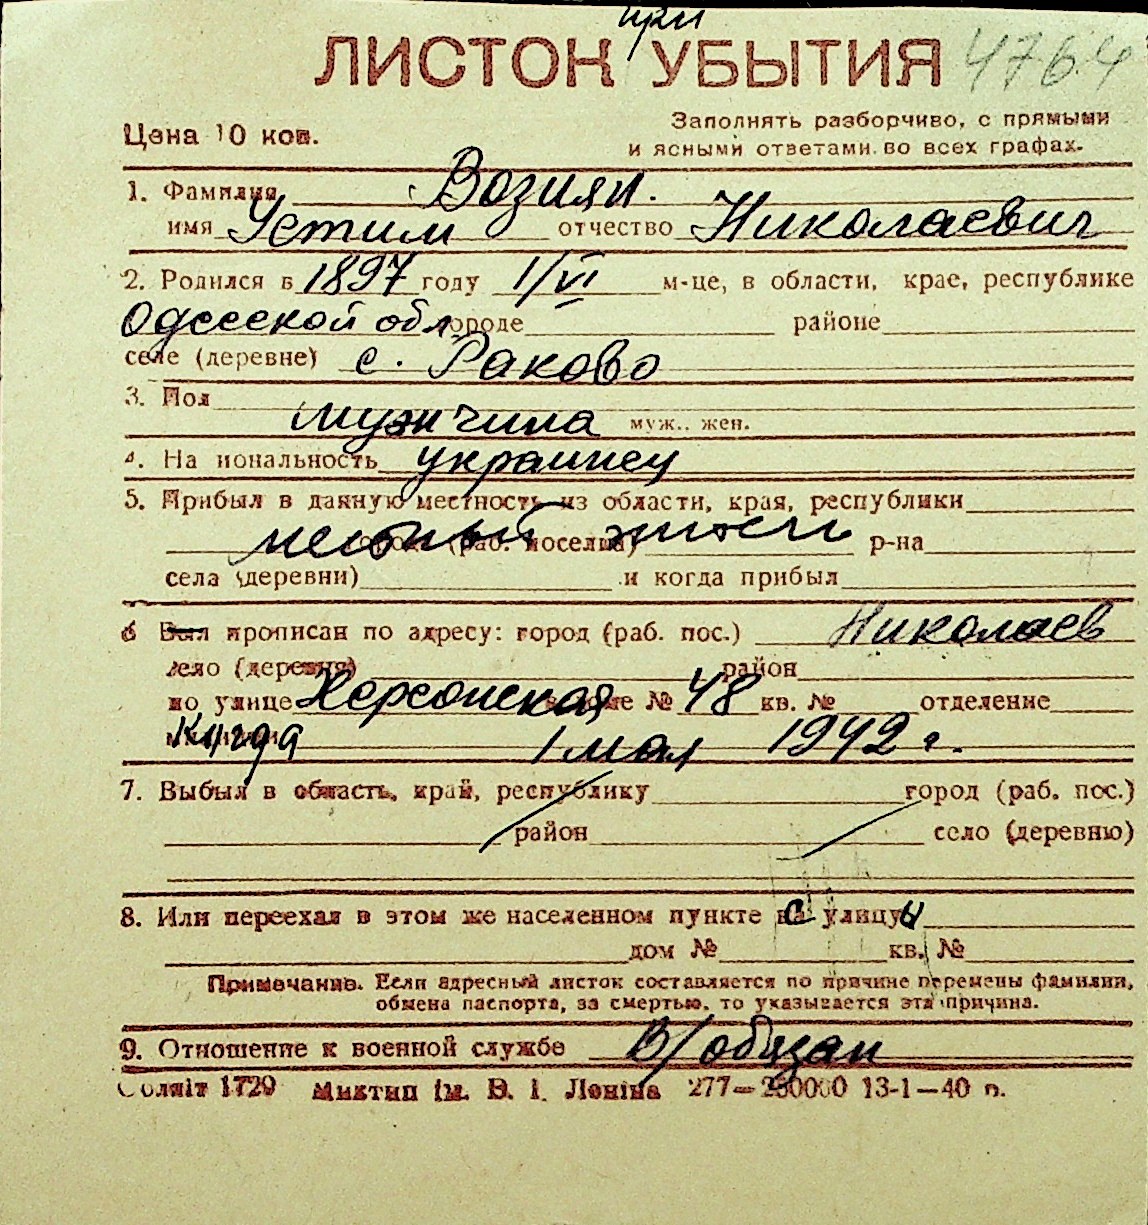 при
ЛИСТОК УБЫТИЯ 4764
Цена 10 коп.
Заполнять разборчиво, с прямыми
и ясными ответами во всех графах.
1. Фамилия Возиян.
имя Устим отчество Николаевич
2. Родился в 1897 году 1/VI м-це, в области, крае, республике
Одесской обл городе районе
селе (деревне) с. Раково
3. Пол
мужчина муж., жен.
4. На иональность украинец
5. Прибыл в данную местность из области, края, республики
местный житель города (раб. поселка) р-на
села (деревни) и когда прибыл
6 Был прописан по адресу: город (раб. пос.) Николаев
село (деревня) район
по улице Херсонская в доме № 48 кв. № отделение
милиции Когда 1 мая 1942 г.
7. Выбыл в область, край, республику город (раб. пос.)
район село (деревню)
8. Или переехал в этом же населенном пункте с улицы
дом № кв. №
Примечание. Если адресный листок составляется по причине перемены фамилии,
обмена паспорта, за смертью, то указывается эта причина.
9. Отношение к военной службе В/обязан
Облліт 1729 Миктип ім. В. І. Леніна 277—250000 13-1—40 р.